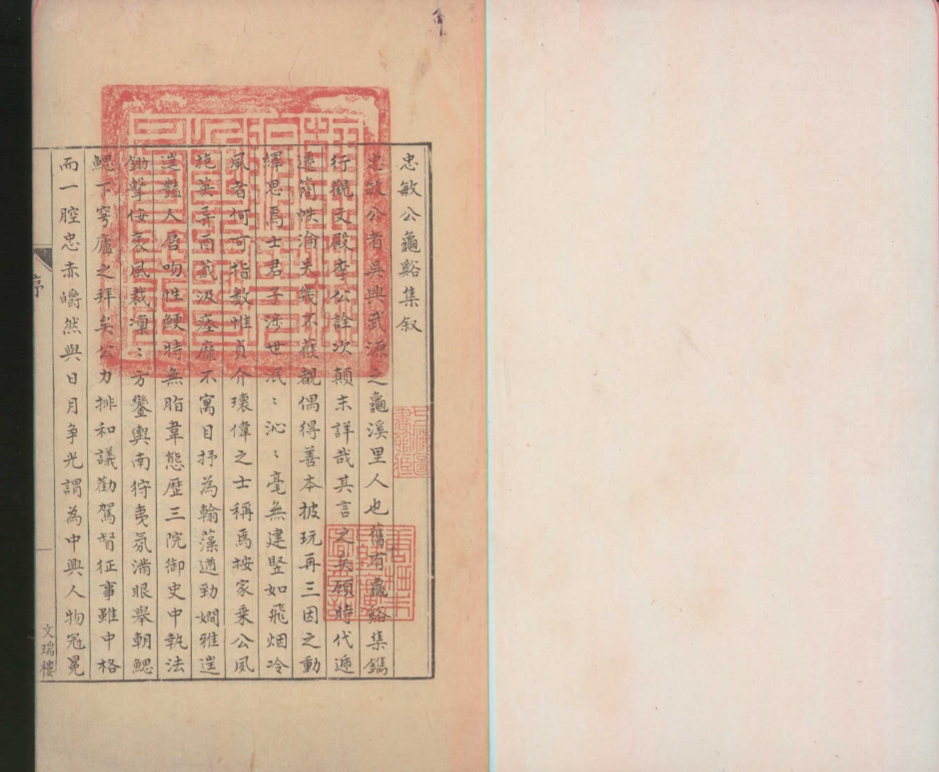 忠敏公龜谿集叙
忠敏公者吳興武源之龜溪里人也舊有龜谿集鐫
行觀文殿李公詮次顛末詳哉其言之矣顧時代遞
遷簡帙淪失幾不獲覩偶得善本披玩再三因之動
繹思焉士君子涉世汎:沁:毫無建竪如飛烟冷
風者何可指數惟貞介瓌偉之士稱焉按家乗公夙
施英
百氏
汲
不寓目抒為翰藻遒勁嫺雅遑
遑豔人唇吻性鯁時無脂韋態歷三院御史中執法
鋤擊佞
風裁凜:方鑾輿南狩夷氛滿眼舉朝鰓
鰓下穹廬之拜矣公力排和議勸駕督征事雖中格
而一腔忠赤皭然與日月争光謂為中興人物冠冕
序
文瑞樓